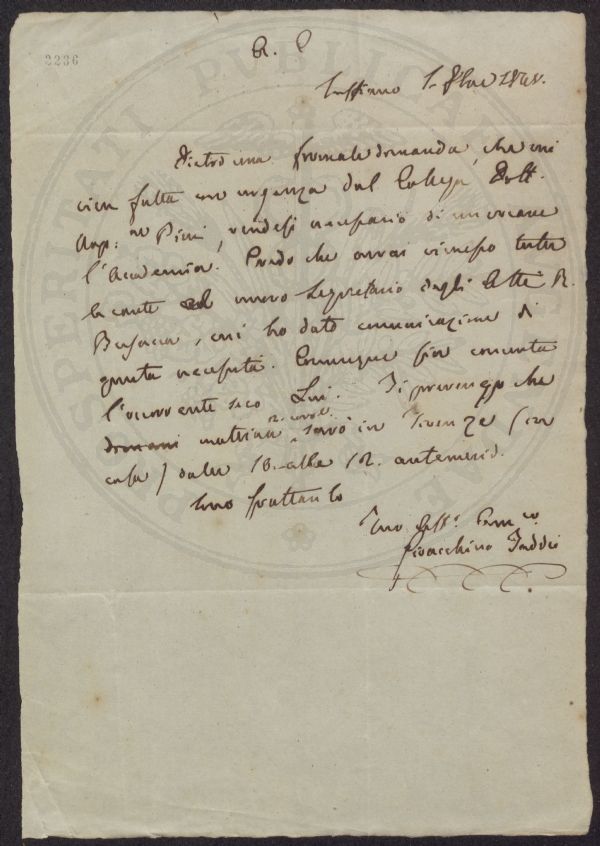 2236
Luffiano 1. 8bre 1848.
Dietro una formale domanda, che mi
vien fatta con urgenza dal Collega Dott.
Pini, rendesi necessario di convocare
l'Accademia. Credo che avrai rimesso tutte
le carte al nuovo Segretario degli Atti R.
Busacca, cui ho dato comunicazione di
questa necessità. Comunque sia concerta
l'occorrente seco Lui. Ti prevengo che
domani mattina sarò in Firenze (in
casa) dalle 10. alle 12. antemerid.
Sono frattanto
Tuo Aff. Amico
Gioacchino Taddei